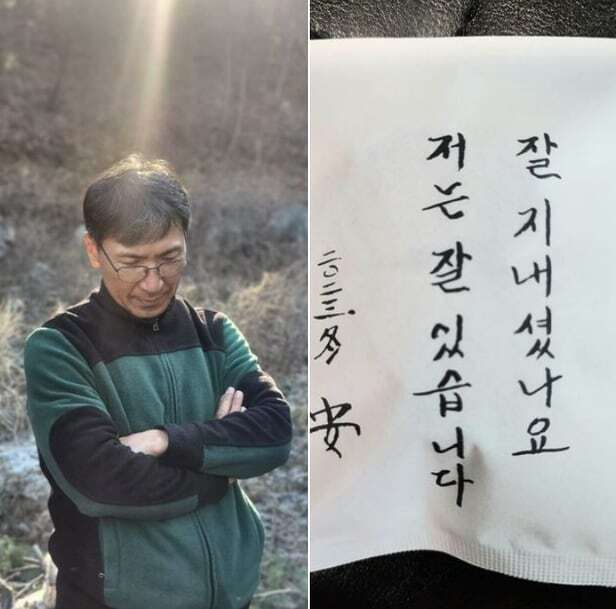 잘 지내셨나요
저는 잘 있습니다
二〇二三.冬 安